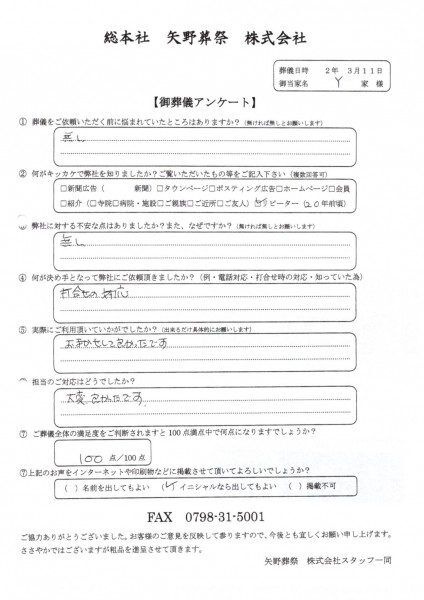 総本社　矢野葬祭　株式会社
葬儀日時　2年　3月11日
御当家名　Y　家　様
【御葬儀アンケート】
① 葬儀をご依頼いただく前に悩まれていたところはありますか？（無ければ無しとお願いします）
無し
② 何がキッカケで弊社を知りましたか？ご覧いただいたもの等をご記入下さい（複数回答可）
□新聞広告（　　　新聞）□タウンページ□ポスティング広告□ホームページ□会員
□紹介（□寺院□病院・施設□ご親族□ご近所□ご友人）☑リピーター（20年前頃）
③ 弊社に対する不安な点はありましたか？また、なぜですか？（無ければ無しとお願いします）
無し
④ 何が決め手となって弊社にご依頼頂きましたか？（例・電話対応・打合せ時の対応・知っていた為）
打合せの対応
⑤ 実際にご利用頂いていかがでしたか？（出来るだけ具体的にお願いします）
お和かして良かったです
担当のご対応はどうでしたか？
大変良かったです。
⑦ ご葬儀全体の満足度をご判断されますと100点満点中で何点になりますでしょうか？
100 点/100点
⑦上記のお声をインターネットや印刷物などに掲載させて頂いてよろしいでしょうか？
（　）名前を出してもよい　（✓）イニシャルなら出してもよい　（　）掲載不可
FAX　0798-31-5001
ご協力ありがとうございました。お客様のご意見を反映して参りますので、今後とも宜しくお願い申し上げます。
ささやかではございますが粗品を進呈させて頂きます。
矢野葬祭　株式会社スタッフ一同